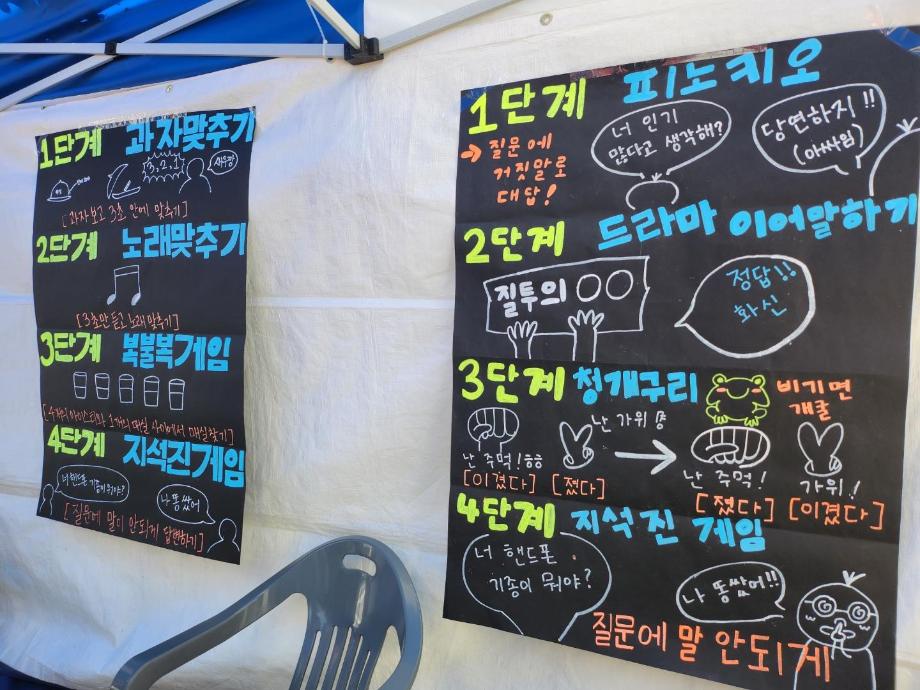 1단계 과자맞추기
3, 2, 1
새우깡
[과자보고 3초 안에 맞추기]
2단계 노래맞추기
[3초만 듣고 노래 맞추기]
3단계 복불복게임
[4개의 아이스티와 1개의 매실 사이에서 매실찾기]
4단계 지석진게임
너 핸드폰 기종이 뭐야?
나 똥쌌어
[질문에 말이 안되게 답변하기]
1단계 피노키오
→ 질문에
거짓말로
대답!
너 인기
많다고 생각해?
당연하지!!
(아싸임)
2단계 드라마 이어말하기
질투의 ○○
정답!!
화신
3단계 청개구리
비기면
개굴
난 주먹!ㅎㅎ
난 가위!
[이겼다] [졌다]
난 주먹!
가위!
[졌다] [이겼다]
4단계 지석진 게임
너 핸드폰
기종이 뭐야?
나 똥쌌어!!
질문에 말 안되게